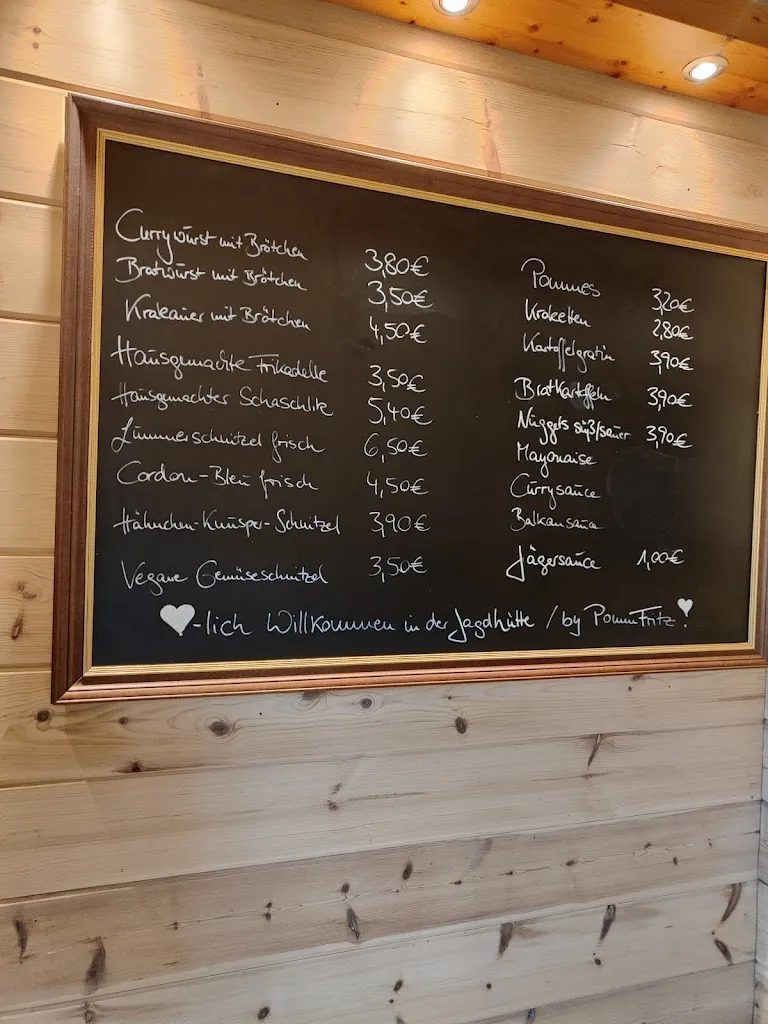 Currywurst mit Brötchen 3,80€
Bratwurst mit Brötchen 3,50€
Krakauer mit Brötchen 4,50€
Hausgemachte Frikadelle 3,50€
Hausgemachter Schaschlik 5,40€
Lümmerschnitzel frisch 6,50€
Cordon-Bleu frisch 4,50€
Hähnchen-Knusper-Schnitzel 3,90€
Vegane Gemüseschnitzel 3,50€
Pommes 3,20€
Kroketten 2,80€
Kartoffelgratin 3,90€
Bratkartoffeln 3,90€
Nuggets süß/sauer 3,90€
Mayonaise
Currysauce
Balkansauce
Jägersauce 1,00€
♥-lich Willkommen in der Jagdhütte / by PommFritz!